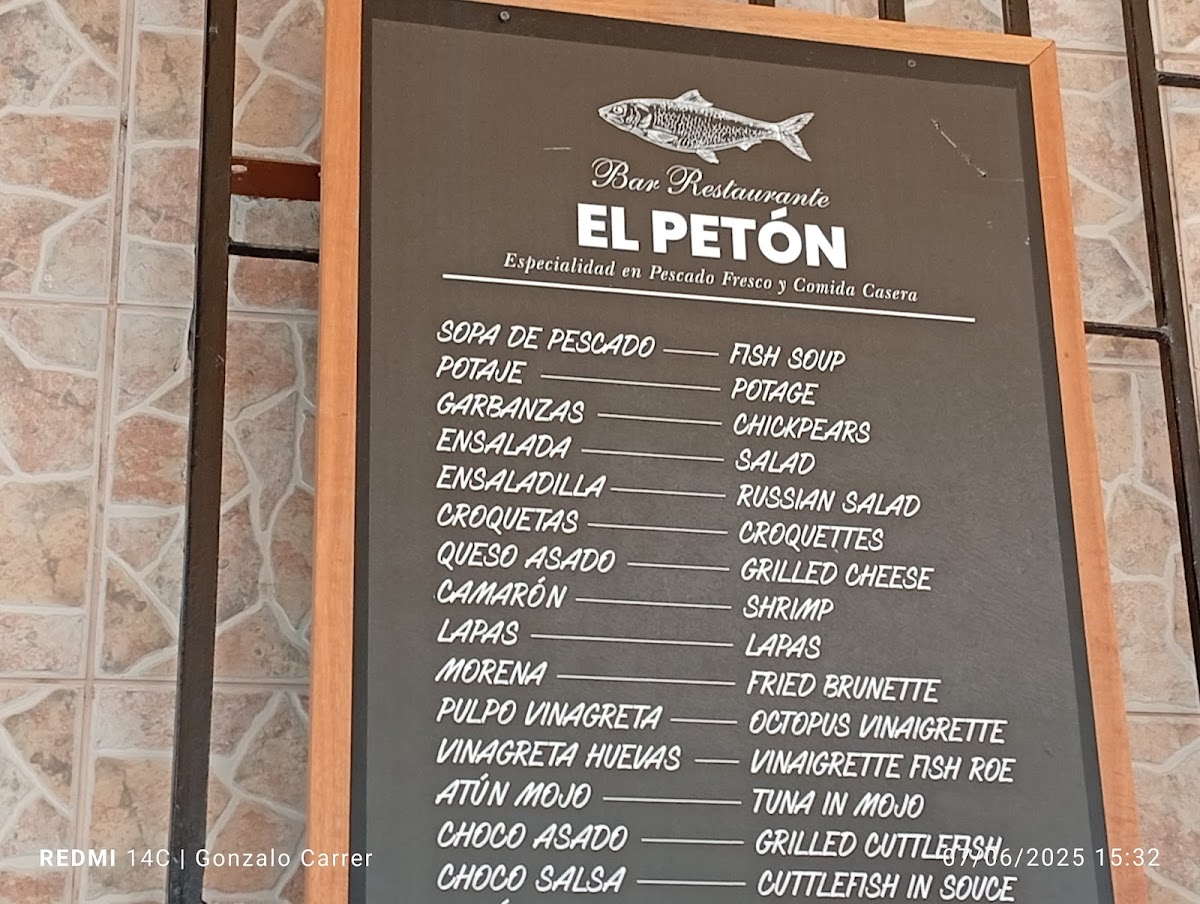 Bar Restaurante
EL PETÓN
Especialidad en Pescado Fresco y Comida Casera
SOPA DE PESCADO FISH SOUP
POTAJE POTAGE
GARBANZAS CHICKPEARS
ENSALADA SALAD
ENSALADILLA RUSSIAN SALAD
CROQUETAS CROQUETTES
QUESO ASADO GRILLED CHEESE
CAMARÓN SHRIMP
LAPAS LAPAS
MORENA FRIED BRUNETTE
PULPO VINAGRETA OCTOPUS VINAIGRETTE
VINAGRETA HUEVAS VINAIGRETTE FISH ROE
ATÚN MOJO TUNA IN MOJO
CHOCO ASADO GRILLED CUTTLEFISH
CHOCO SALSA CUTTLEFISH IN SOUCE
REDMI 14C | Gonzalo Carrer 07/06/2025 15:32